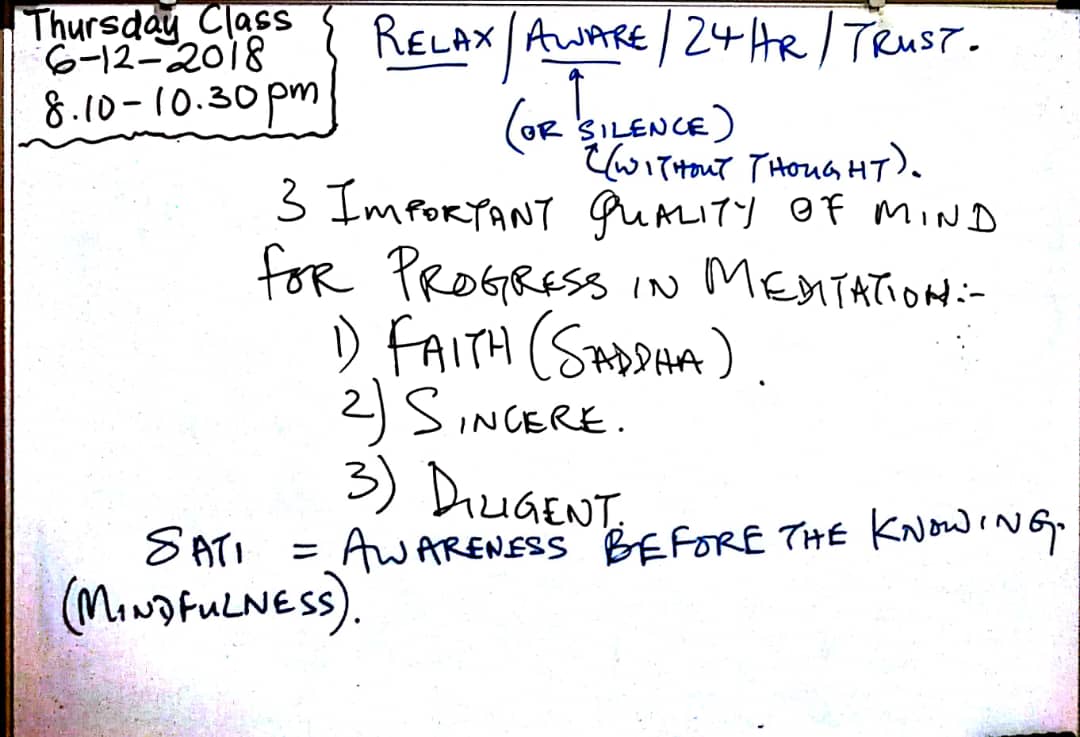 Thursday Class
6-12-2018
8.10-10.30 pm
RELAX / AWARE / 24 HR / TRUST.
(OR SILENCE)
(WITHOUT THOUGHT).
3 IMPORTANT QUALITY OF MIND
FOR PROGRESS IN MEDITATION:-
1) FAITH (SADDHA).
2) SINCERE.
3) DILIGENT.
SATI = AWARENESS BEFORE THE KNOWING.
(MINDFULNESS).